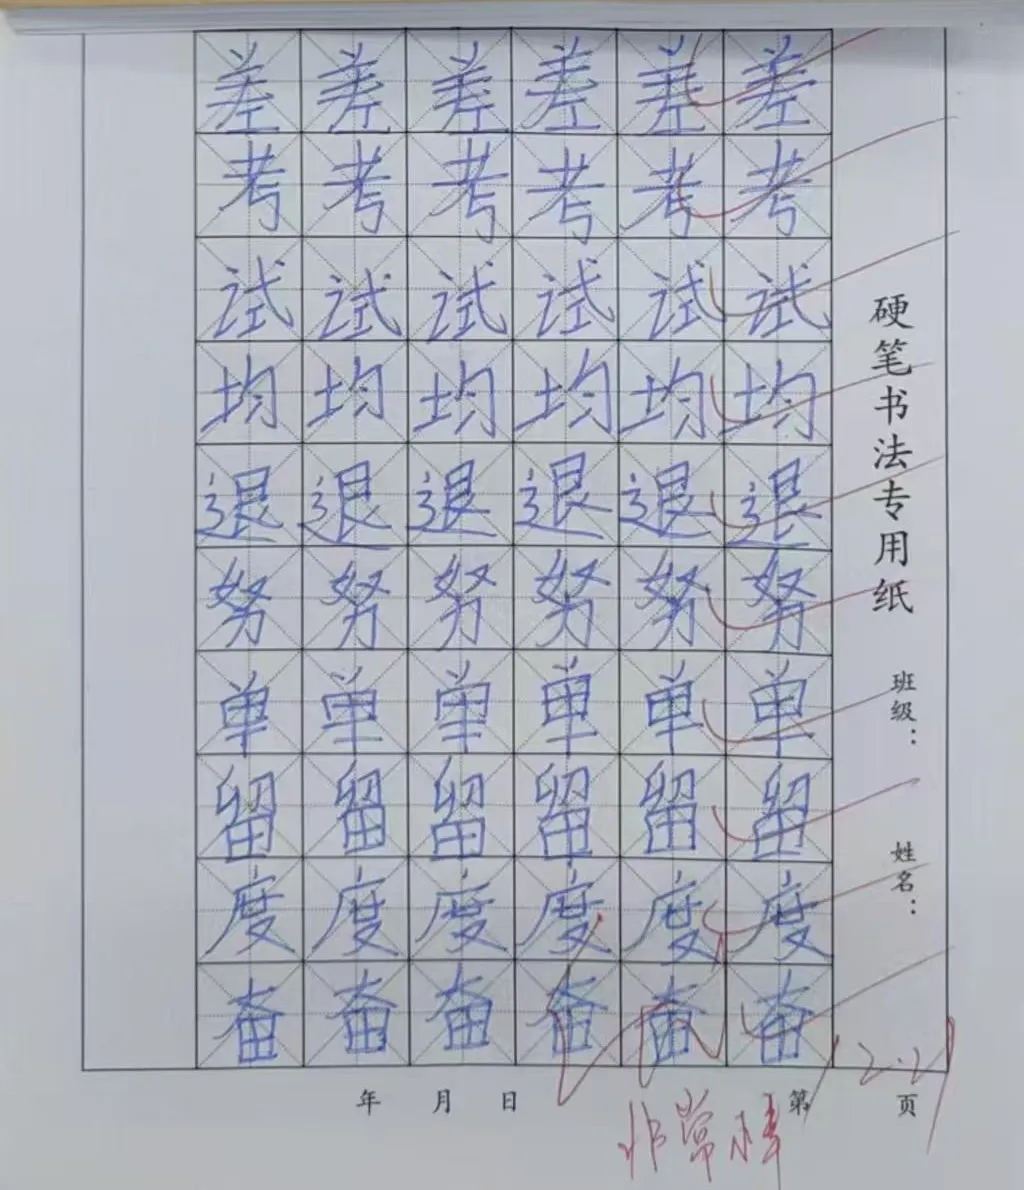 差差差差差差
考考考考考考
试试试试试试
均均均均均均
退退退退退退
努努努努努努
单单单单单单
留留留留留留
度度度度度度
奋奋奋奋奋奋
硬笔书法专用纸
班级：
姓名：
年 月 日
第 页
12.21
非常棒